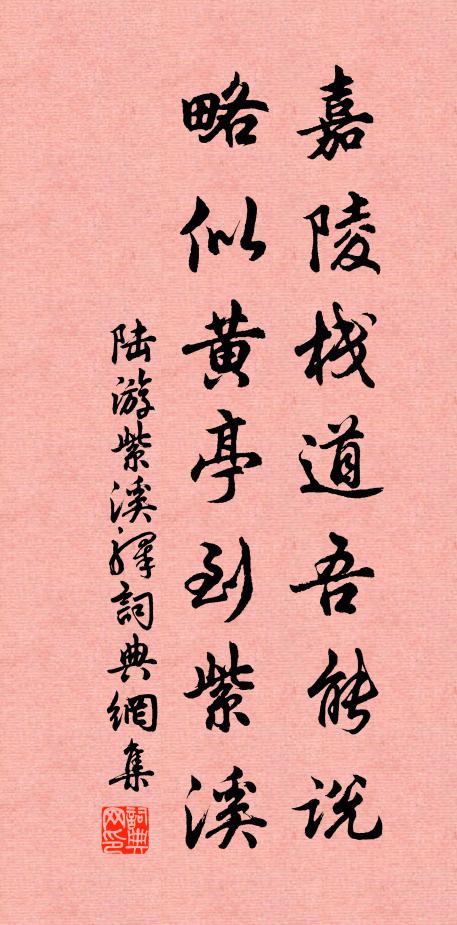 嘉陵栈道吾能说
略似黄亭到紫溪
陆游紫溪驿詞典網集
詞典网印